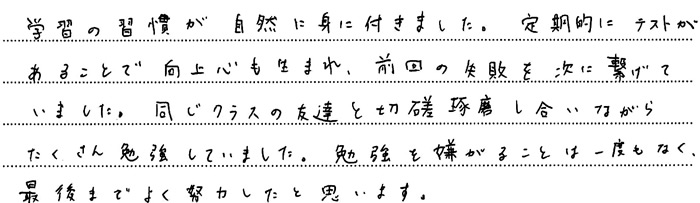 学習の習慣が自然に身に付きました。定期的にテストが
あることで向上心も生まれ、前回の失敗を次に繋げて
いました。同じクラスの友達と切磋琢磨し合いながら
たくさん勉強していました。勉強を嫌がることは一度もなく、
最後までよく努力したと思います。